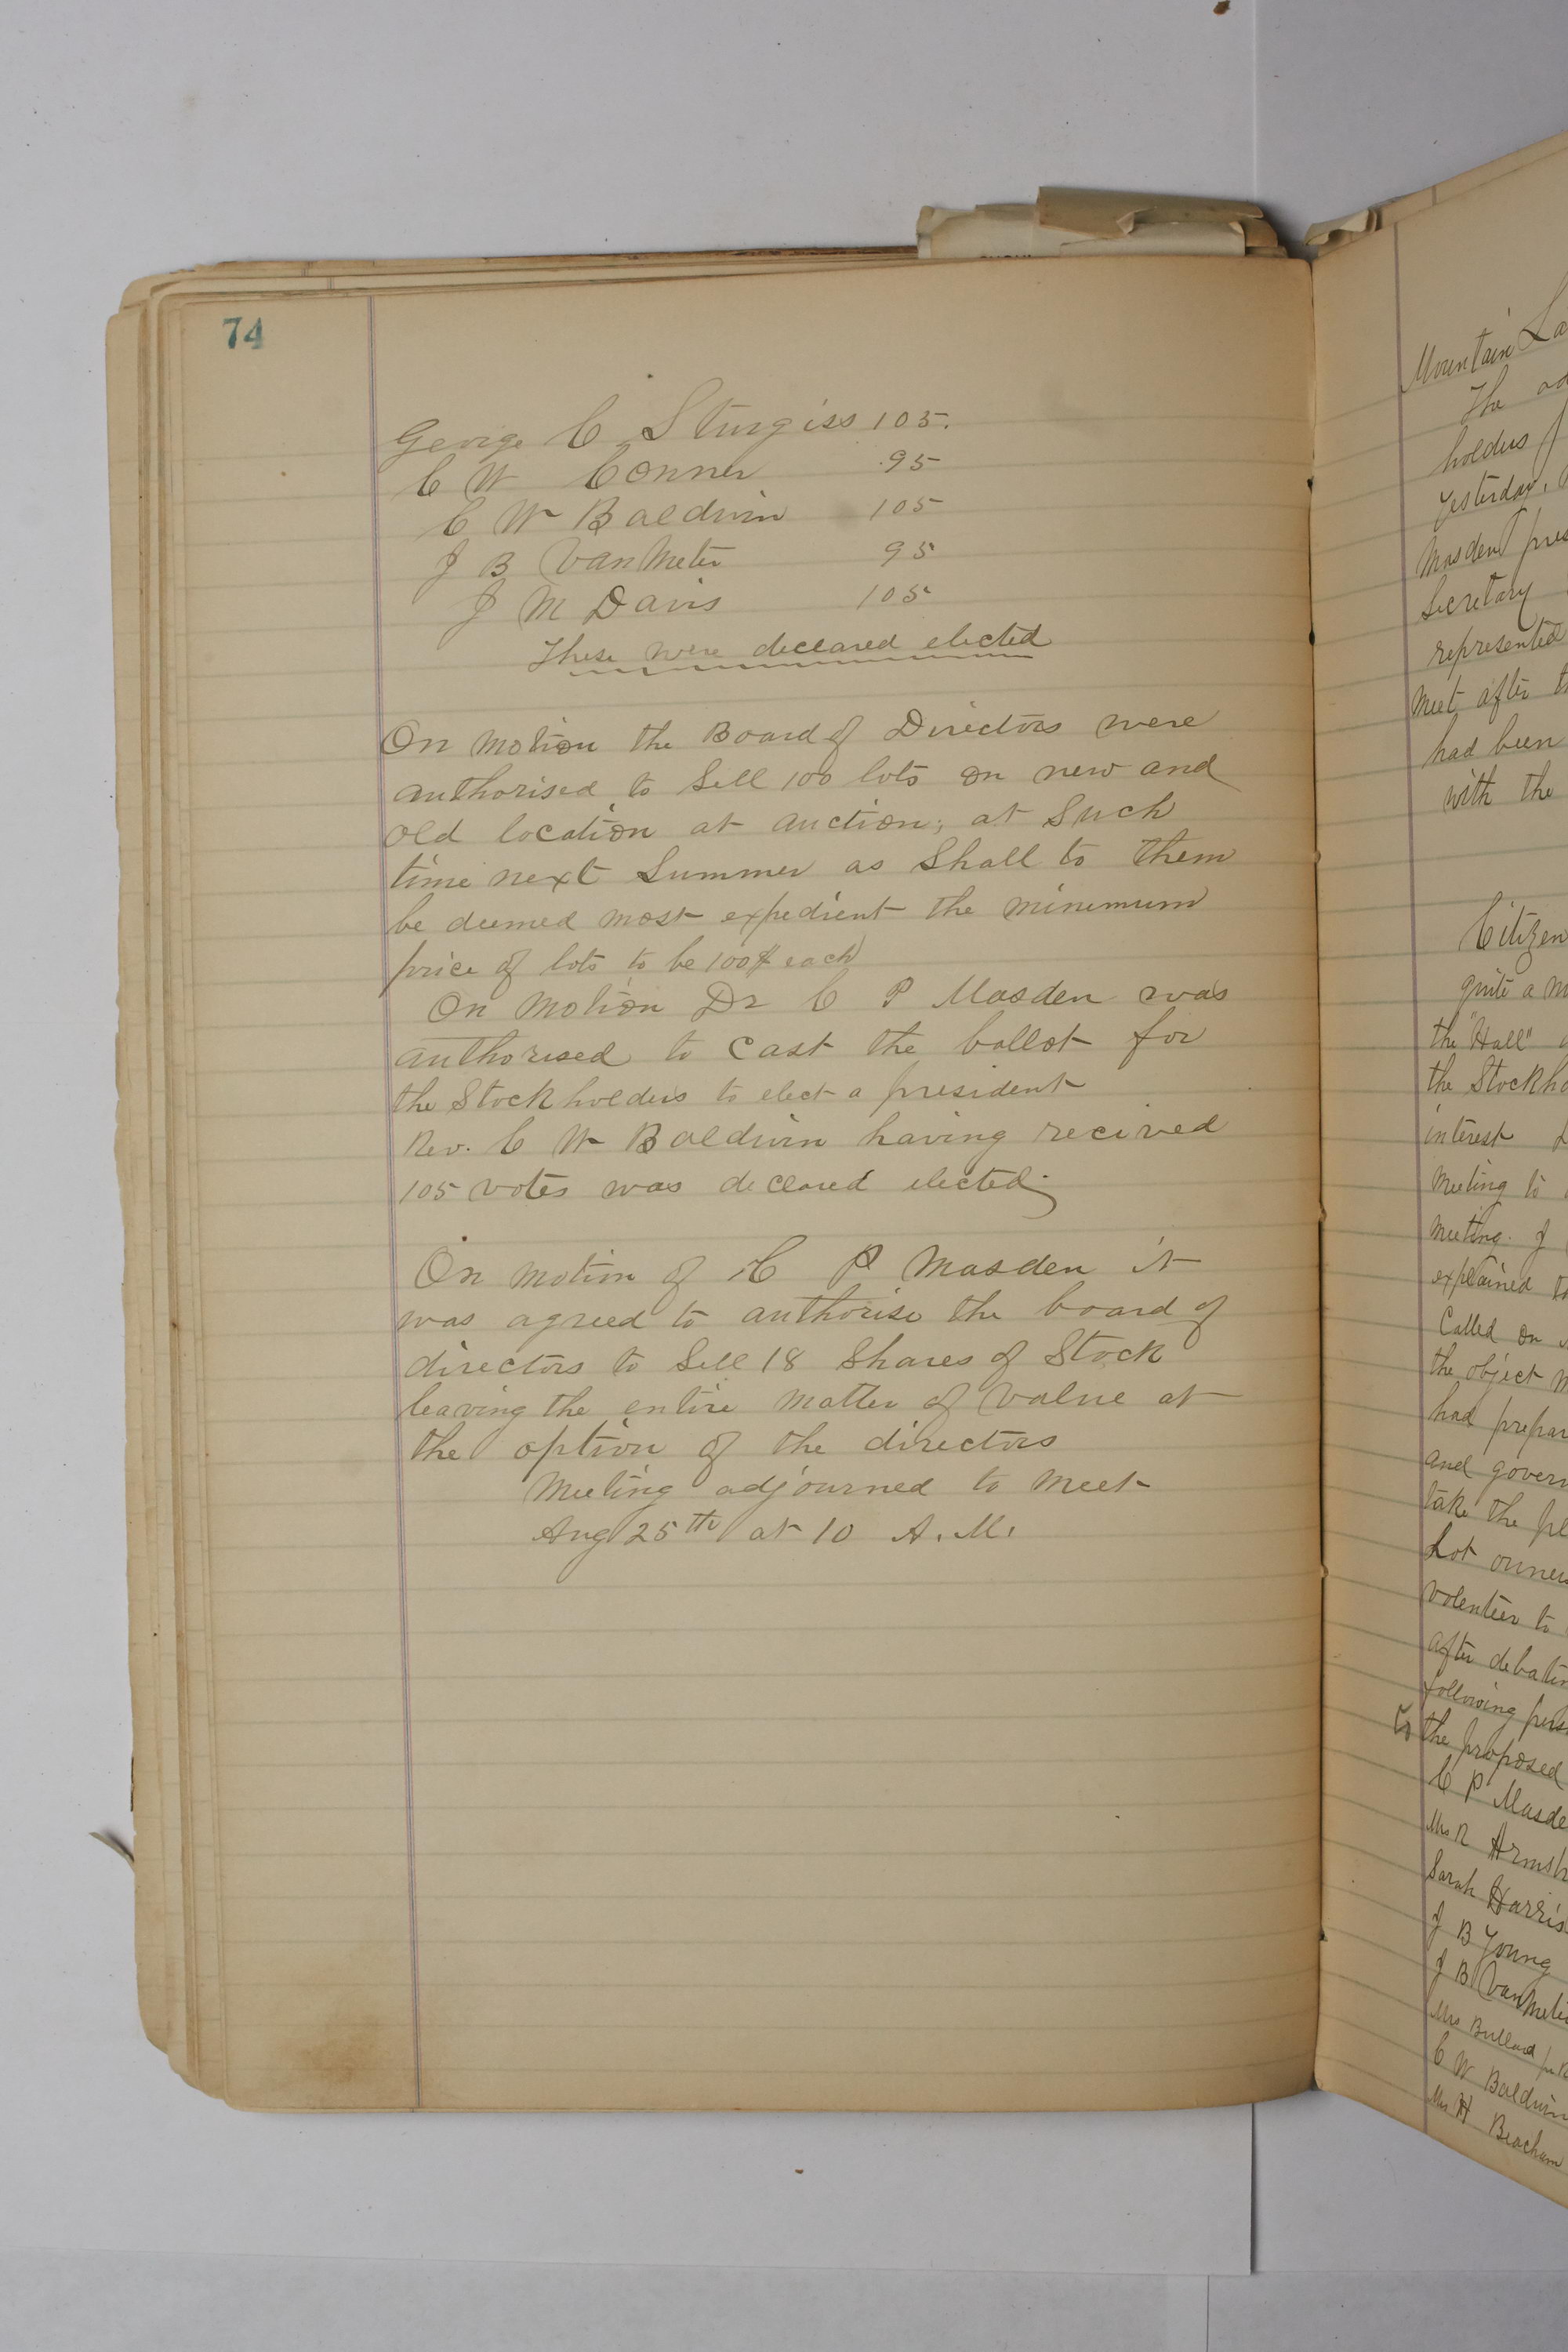 74
George C Sturgiss 105.
C W Conner 95
C W Baldwin 105
J B VanMeter 95
J M Davis 105
These were declared elected
On motion the Board of Directors were
authorised to Sell 100 lots on new and
old location at auction; at Such
time next Summer as Shall to them
be deemed most expedient the minimum
price of lots to be 100$ each
On motion Dr C P Masden was
authorised to cast the ballot for
the Stockholders to elect a president
Rev. C W Baldwin having recived
105 votes was declared elected.
On motion of C P Masden it
was agreed to authorise the board of
directors to Sell 18 Shares of Stock
leaving the entire matter of value at
the option of the directors
Meeting adjourned to meet
Aug 25th at 10 A.M.
Mountain La
The ad
holders
yesterday.
Masden pres
Secretary
represented
Meet after th
had been
with the
Citizen
quite a m
the "Hall"
the Stockho
interest
Meeting to
meeting. J
explained th
Called on
the object
had prepar
and govern
take the pl
Lot owner
volenteer to
after debatin
following pers
the proposed
C P Masde
Mrs R Armstr
Sarah Harris
J B Young
J B VanMete
Mrs Bullard
C W Baldwin
Mrs H Beacham